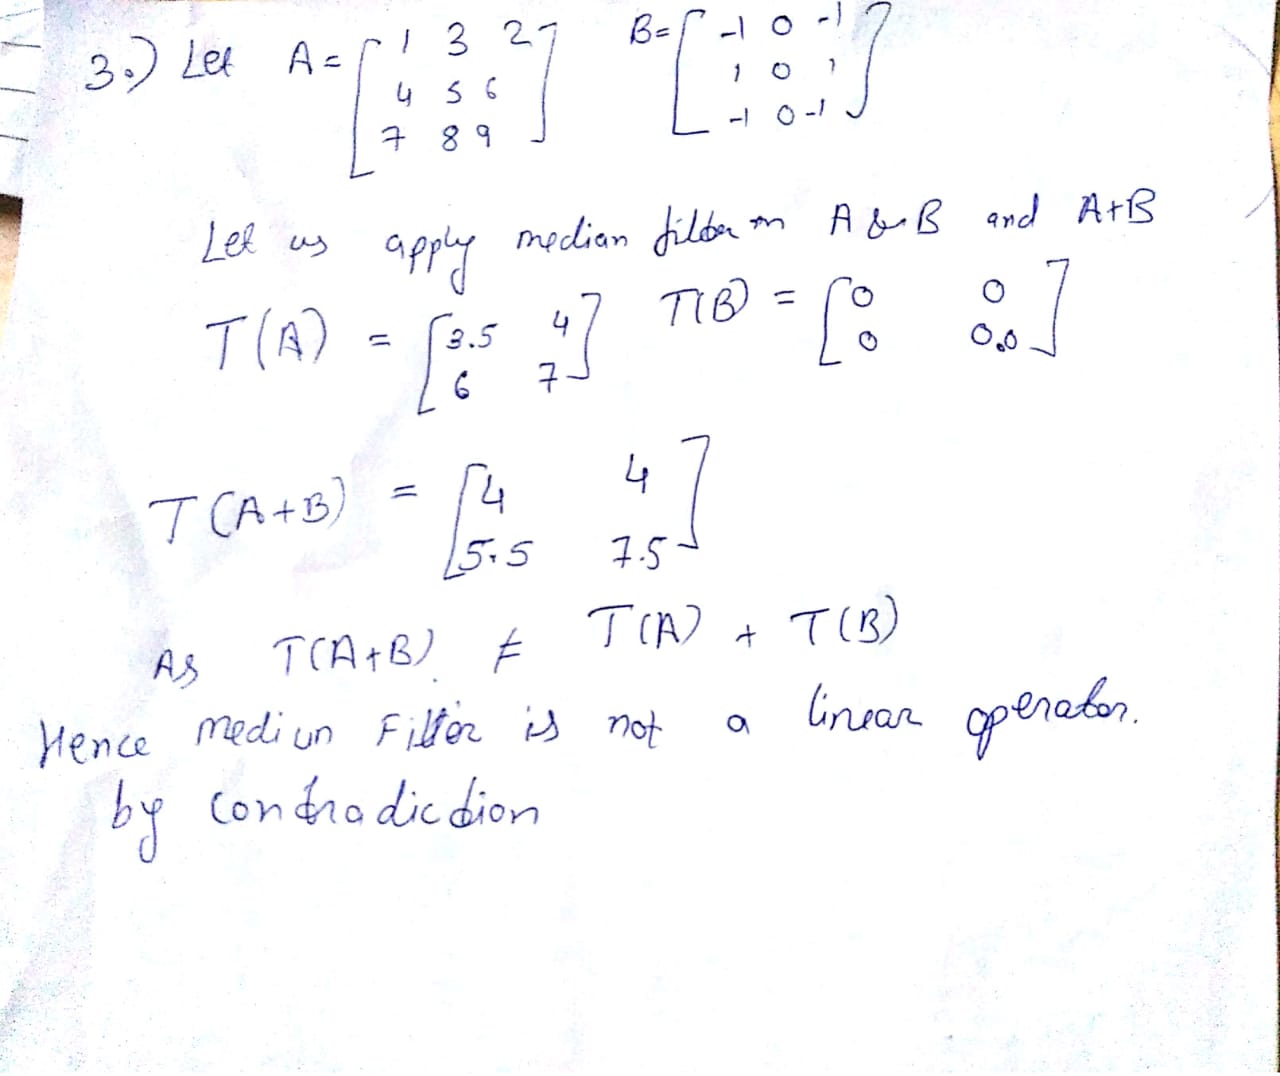 3.) Let A = [ 1 3 2 B = [ -1 0 -1
4 5 6 1 0 1
7 8 9 ] -1 0 -1 ]
Let us apply median filter on A & B and A+B
T(A) = [ 3.5 4 T(B) = [ 0 0
6 7 ] 0 0.0 ]
T(A+B) = [ 4 4
5.5 7.5 ]
As T(A+B) ≠ T(A) + T(B)
Hence mediun Filter is not a linear operator.
by contradiction